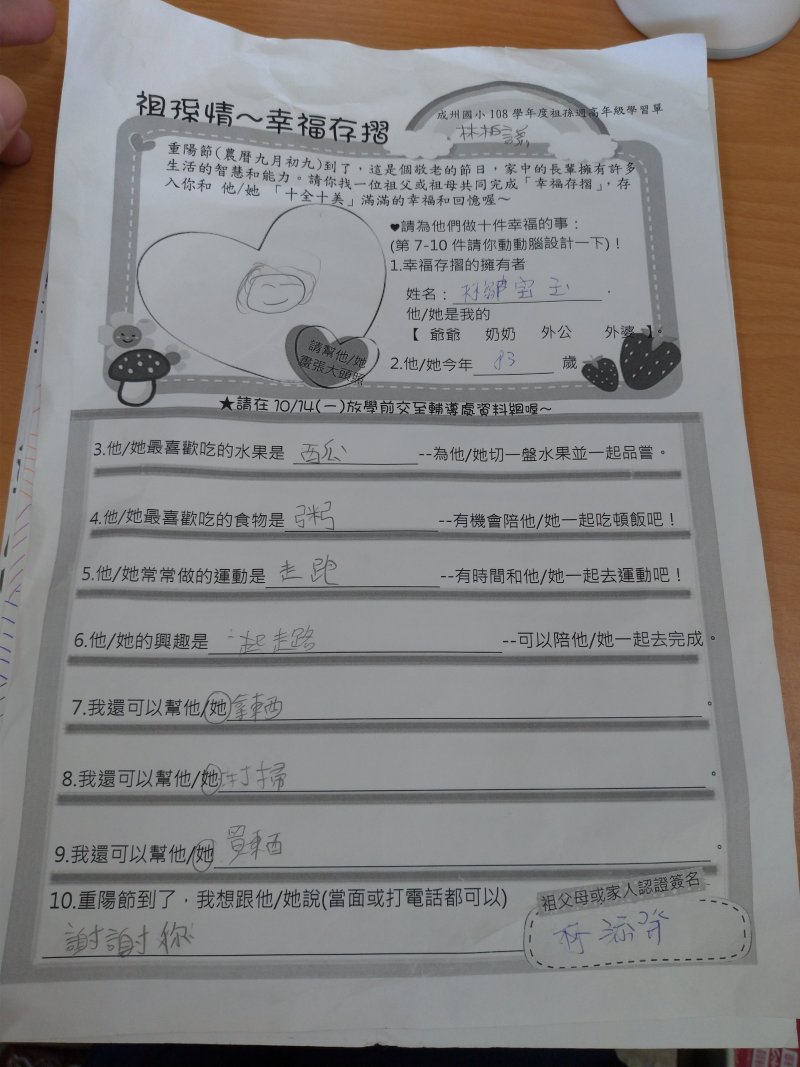 祖孫情～幸福存摺
成州國小108學年度祖孫週高年級學習單
林
重陽節(農曆九月初九)到了，這是個敬老的節日，家中的長輩擁有許多
生活的智慧和能力。請你找一位祖父或祖母共同完成「幸福存摺」，存
入你和 他/她 「十全十美」滿滿的幸福和回憶喔～
♥請為他們做十件幸福的事：
(第 7-10 件請你動動腦設計一下)！
1.幸福存摺的擁有者
姓名：林 宝玉
他/她是我的
【 爺爺 奶奶 外公 外婆 】。
請幫他/她
畫張大頭照
2.他/她今年 83 歲
★請在 10/14(一)放學前交至輔導處資料組喔～
3.他/她最喜歡吃的水果是 西瓜 --為他/她切一盤水果並一起品嘗。
4.他/她最喜歡吃的食物是 粥 --有機會陪他/她一起吃頓飯吧！
5.他/她常常做的運動是 走跑 --有時間和他/她一起去運動吧！
6.他/她的興趣是 一起走路 --可以陪他/她一起去完成。
7.我還可以幫他/她 拿東西。
8.我還可以幫他/她 打掃。
9.我還可以幫他/她 買東西。
10.重陽節到了，我想跟他/她說(當面或打電話都可以)
謝謝你
祖父母或家人認證簽名
林添